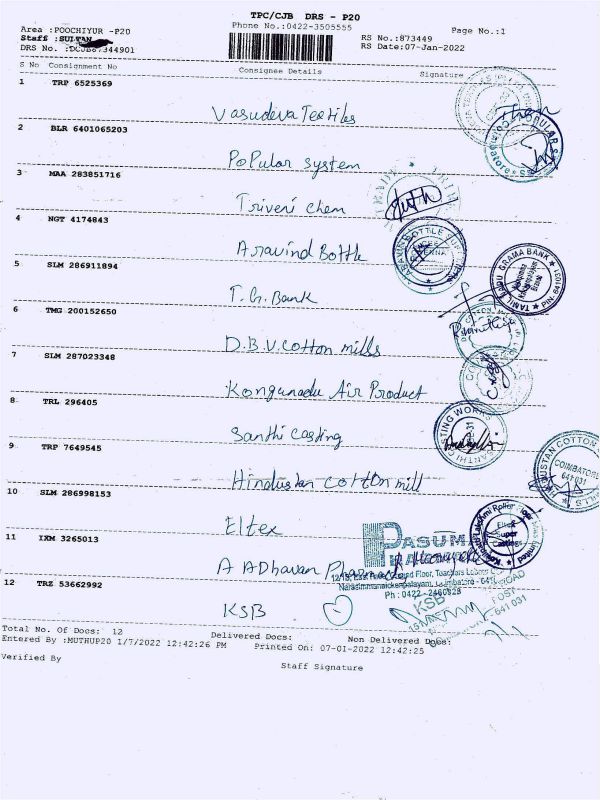 TPC/CJB DRS - P20
Area :POOCHIYUR -P20
Phone No.:0422-3505555
Page No.:1
Staff :SULTAN
RS No.:873449
DRS No. :DCJB87344901
RS Date:07-Jan-2022
S No Consignment No
Consignee Details
Signature
1 TRP 6525369
Vasudeva Textiles
2 BLR 6401065203
Popular system
3 MAA 283851716
Triveni chem
4 NGT 4174843
Aravind Bottle
5 SLM 286911894
T.G. Bank
TAMIL NADU GRAMA BANK
6 TMG 200152650
D.B.V. Cotton mills
7 SLM 287023348
Kongunadu Air Product
8 TRL 296405
Santhi casting
SANTHI CASTING WORKS
9 TRP 7649545
Hindustan cotton mill
HINDUSTAN COTTON MILLS
COIMBATORE
641 031
10 SLM 286998153
Eltex
Eltex
Super
Castings
11 IXM 3265013
A ADhavan Pharmacy
Ph : 0422 - 2460828
12 TRZ 53662992
KSB
KSB
Total No. Of Docs: 12
Delivered Docs:
Non Delivered Docs:
Entered By :MUTHUP20 1/7/2022 12:42:26 PM
Printed On: 07-01-2022 12:42:25
Verified By
Staff Signature